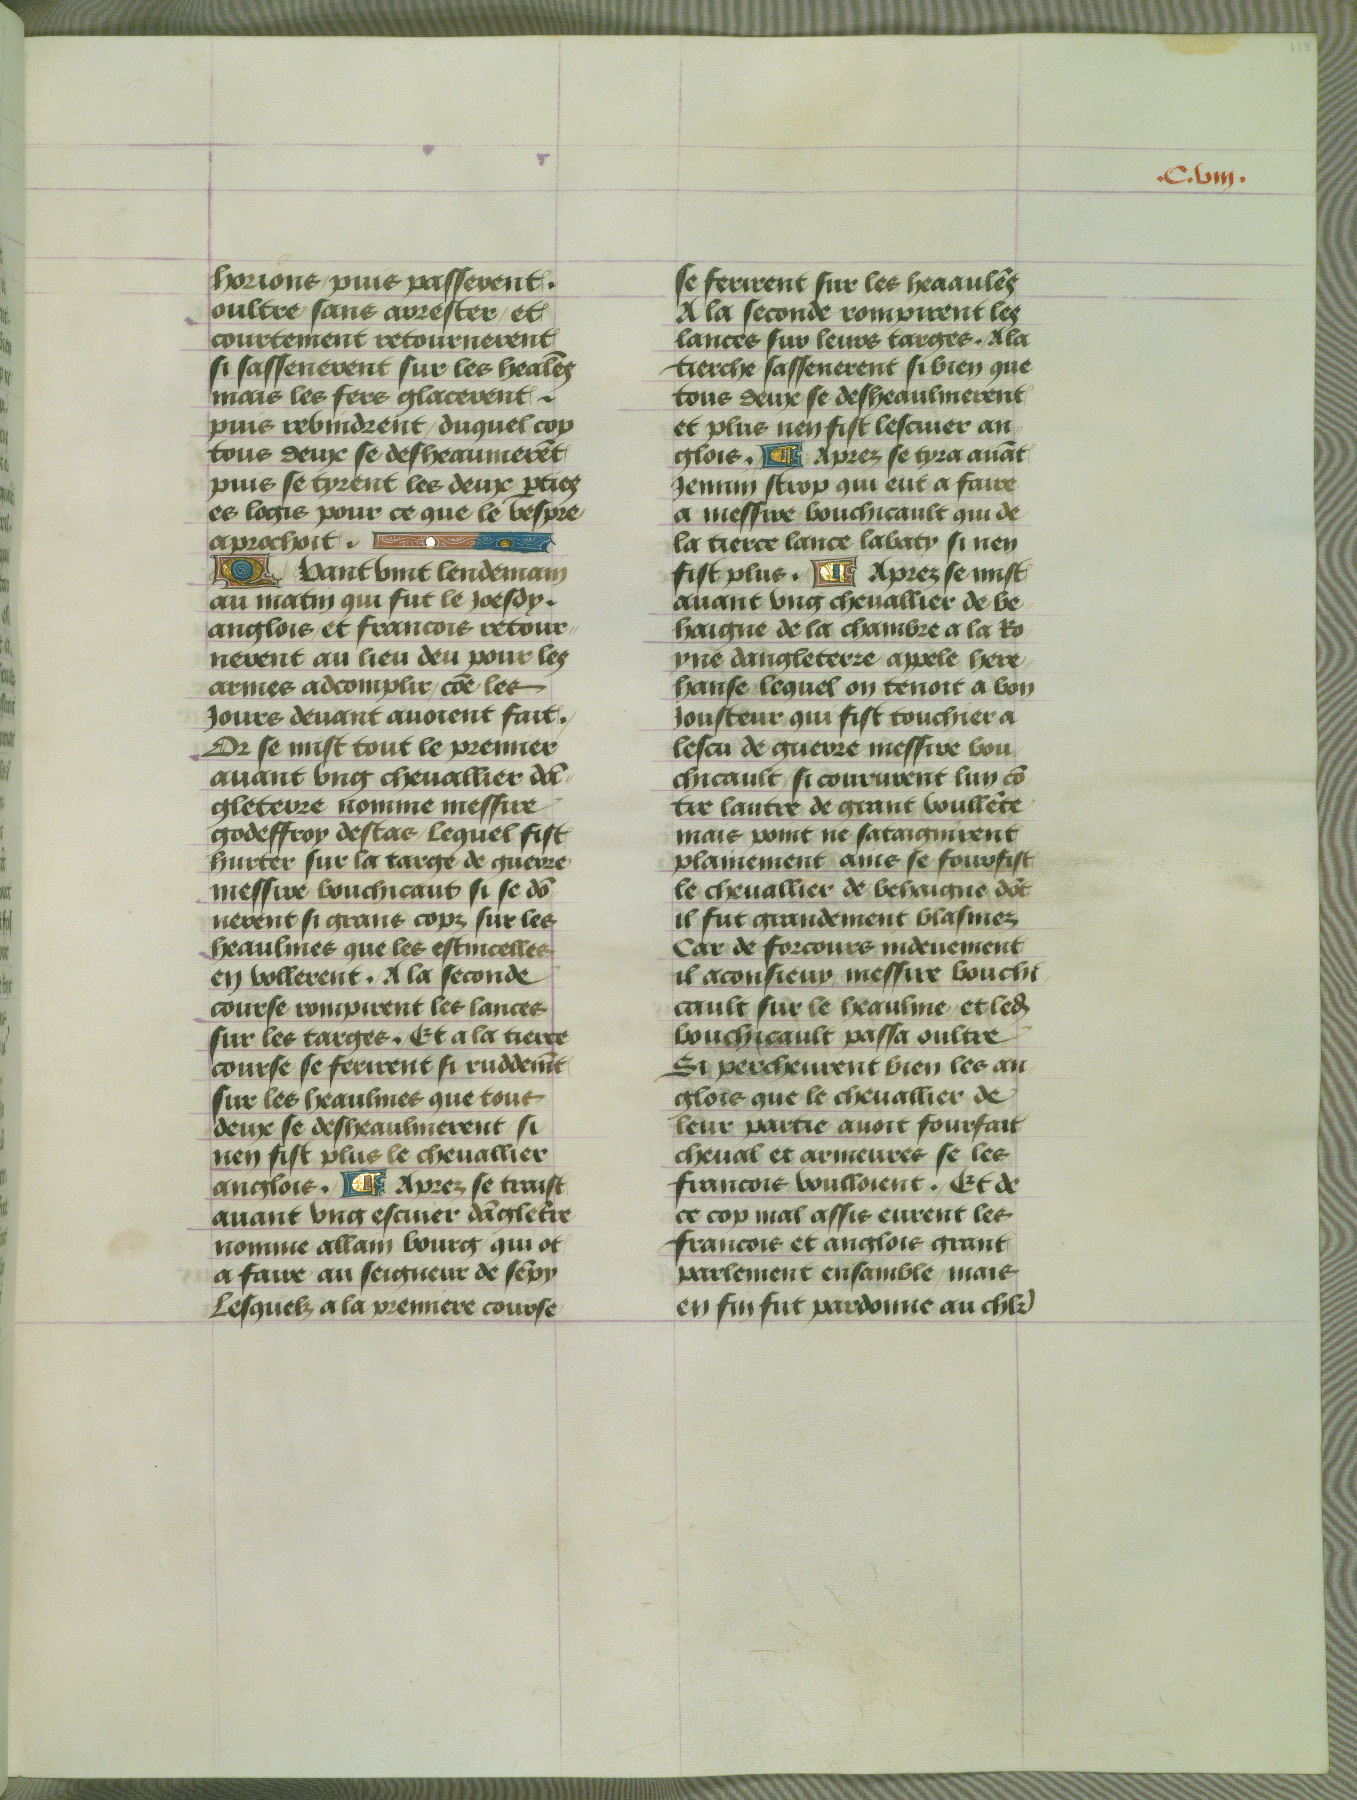 118
.C.viij.
horions puis passerent.
oultre sans arrester et
courtement retournerent
si sassenerent sur les healm̄es
mais les fers glacerent.
puis revindrent / duquel cop
tous deux se desheaumerēt
puis se tyrent les deux p̄ties
es logis pour ce que le vespre
aprochoit.
Quant vint lendemain
au matin qui fut le Joesdy.
anglois et francois retour-
nerent au lieu deu pour les
armes adcomplir / cōe les
Jours devant avoient fait.
Or se mist tout le premier
avant vng chevallier dā-
gleterre nomme messire
godeffroy destas Lequel fist
hurter sur la targe de guerre
messire bouchicault si se dō
nerent si grans copz sur les
heaulmes que les estincelles
en vollerent. A la seconde
course rompirent les lances
sur les targes. Et a la tierce
course se ferirent si ruddemēt
sur les heaulmes que tous
deux se desheaulmerent si
nen fist plus le chevallier
anglois. Aprez se traist
avant vng escuier dāgletr̄re
nomme allain bourg qui ot
a faire au seigneur de sēpy
Lesquelz a la premiere course
se ferirent sur les heaaulm̄es
A la seconde rompirent les
lances sur leurs targes. A la
tierche sassenerent si bien que
tous deux se desheaulmerent
et plus nen fist lescuier an
glois. Aprez se tyra avāt
Jennin strop qui eut a faire
a messire bouchicault qui de
la tierce lance labaty si nen
fist plus. Aprez se mist
avant vng chevallier de be
haigne de la chambre a la Ro
yne dangleterre appele here
hanse lequel on tenoit a bon
Jousteur qui fist touchier a
lescu de guerre messire bou
chicault si coururent lun cō
tre lautre de grant voullēte
mais point ne sataignirent
plainement ains se fourfist
le chevallier de behaigne dōt
il fut grandement blasmez
Car de forcours indeuement
il aconsieuy messire bouchi
cault sur le heaulme et led̄
bouchicault passa oultre
Si percheurent bien les an
glois que le chevallier de
leur partie avoit fourfait
cheval et armeures se les
francois voulloient. Et de
ce cop mal assis eurent les
francois et anglois grant
parlement ensamble / mais
en fin fut pardonne au chlr̄